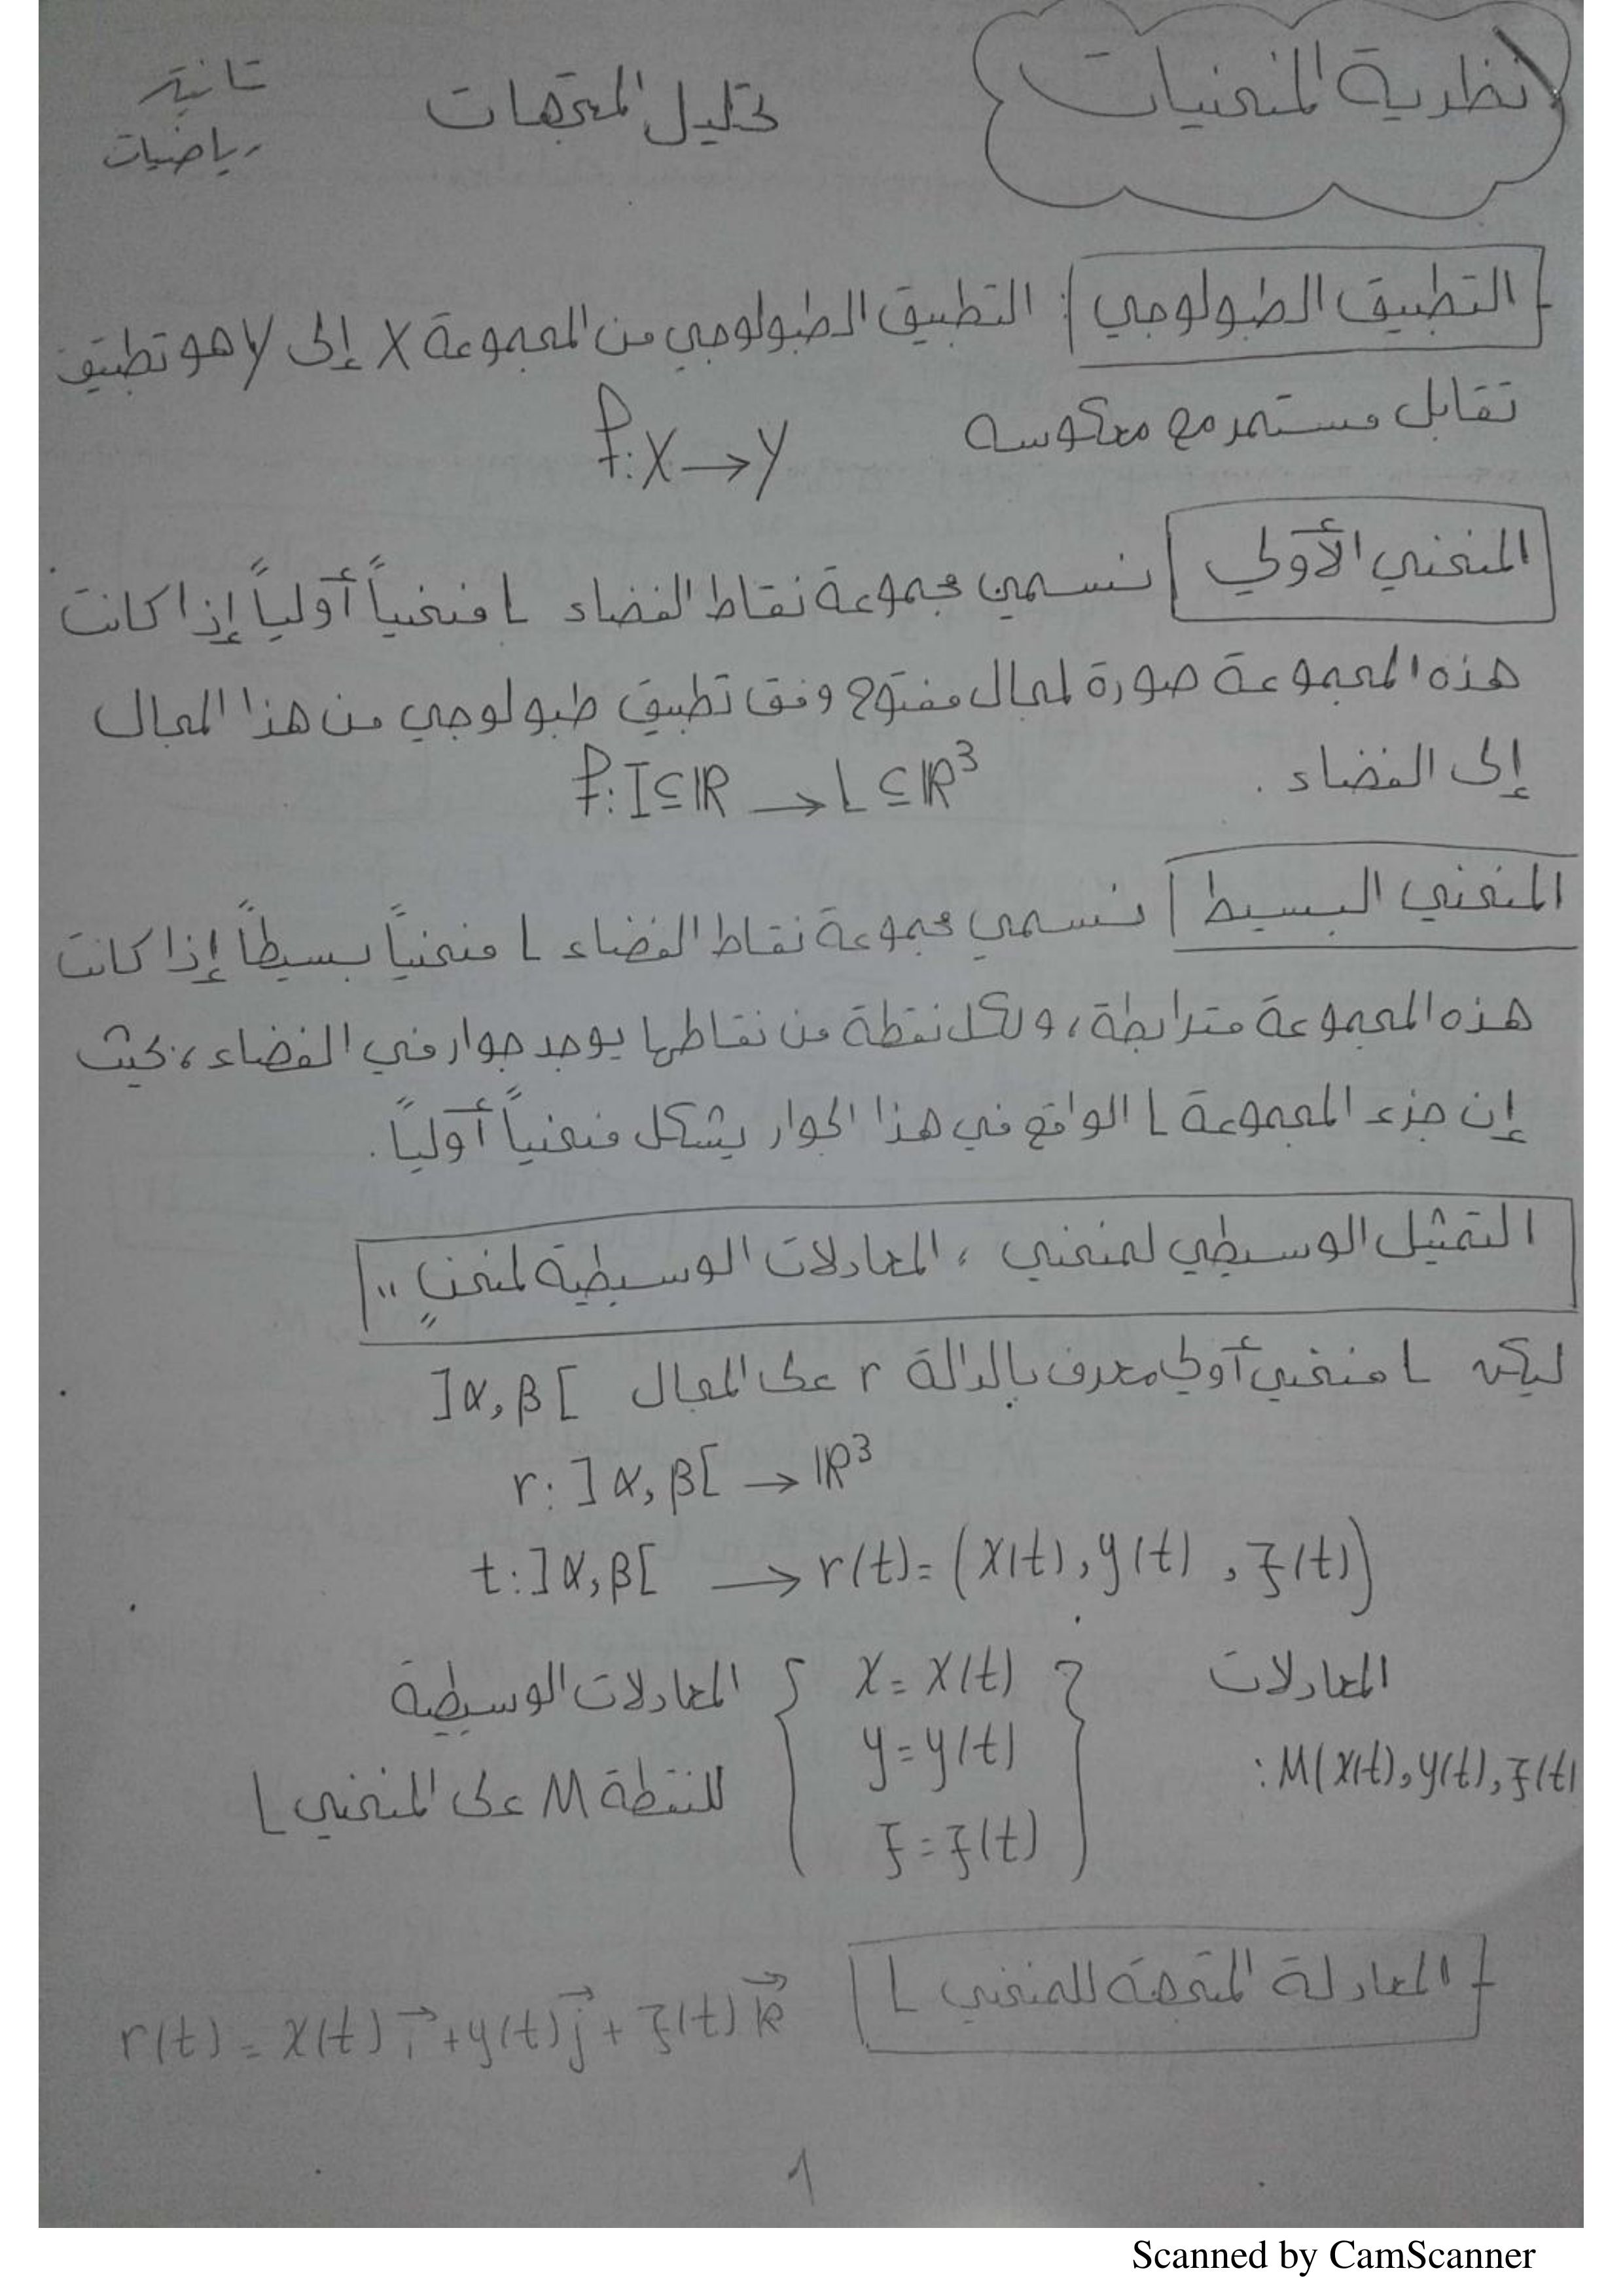 نظرية المنحنيات
تحليل المتجهات
ثانية
رياضيات
التطبيق الطبولوجي : التطبيق الطبولوجي من المجموعة X إلى Y هو تطبيق
تقابل مستمر مع معكوسه f: X → Y
المنحني الأولي نسمي مجموعة نقاط الفضاء L منحنياً أولياً إذا كانت
هذه المجموعة صورة لمجال مفتوح وفق تطبيق طبولوجي من هذا المجال
إلى الفضاء . f: I ⊆ ℝ → L ⊆ ℝ³
المنحني البسيط نسمي مجموعة نقاط الفضاء L منحنياً بسيطاً إذا كانت
هذه المجموعة مترابطة، ولكل نقطة من نقاطها يوجد جوار في الفضاء، بحيث
إن جزء المجموعة L الواقع في هذا الجوار يشكل منحنياً أولياً.
التمثيل الوسيطي لمنحني ، المعادلات الوسيطية لمنحنٍ "
ليكن L منحني أولي معرف بالدالة r على المجال ]α, β[
r: ]α, β[ → ℝ³
t: ]α, β[ → r(t) = (x(t), y(t), z(t))
المعادلات { x = x(t) } المعادلات الوسيطية
:M(x(t), y(t), z(t) { y = y(t) } للنقطة M على المنحني L
z = z(t)
المعادلة المتجهة للمنحني L r(t) = x(t) i⃗ + y(t) j⃗ + z(t) k⃗
1
Scanned by CamScanner